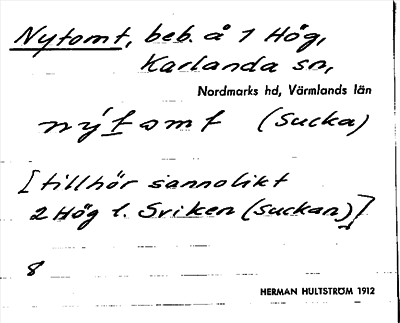 Nytomt, beb. å 1 Hög,
Karlanda sn,
Nordmarks hd, Värmlands län
nýtomt (Sucka)
[tillhör sannolikt
2 Hög l. Sviken (Suckan)]
8
HERMAN HULTSTRÖM 1912